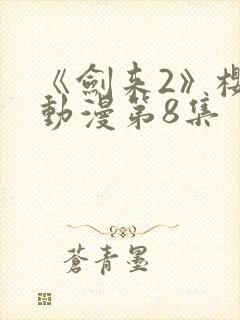 《劍来2》櫻
動漫第8集
蒼青墨